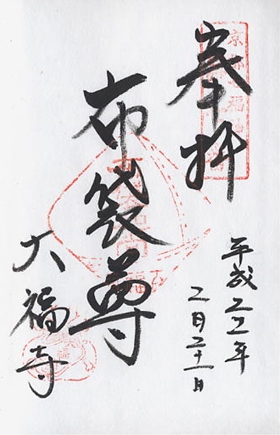 奉拝
平成二二年
二月二十一日
布袋尊
大福寺